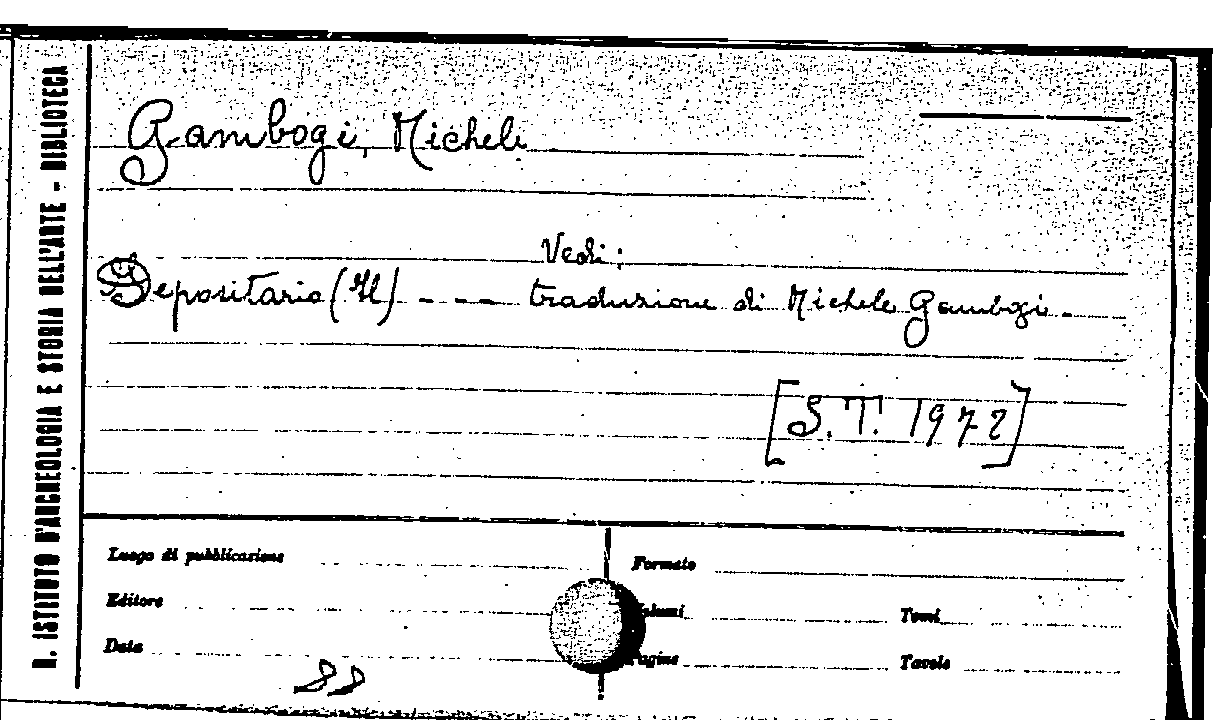 R. ISTITUTO D'ARCHEOLOGIA E STORIA DELL'ARTE - BIBLIOTECA
Gambogi, Michele
Vedi:
Depositario (Il) - - - traduzione di Michele Gambogi. -
[S.T. 1972]
Luogo di pubblicazione
Formato
Editore
Volumi
Tomi
Data
Pagine
Tavole